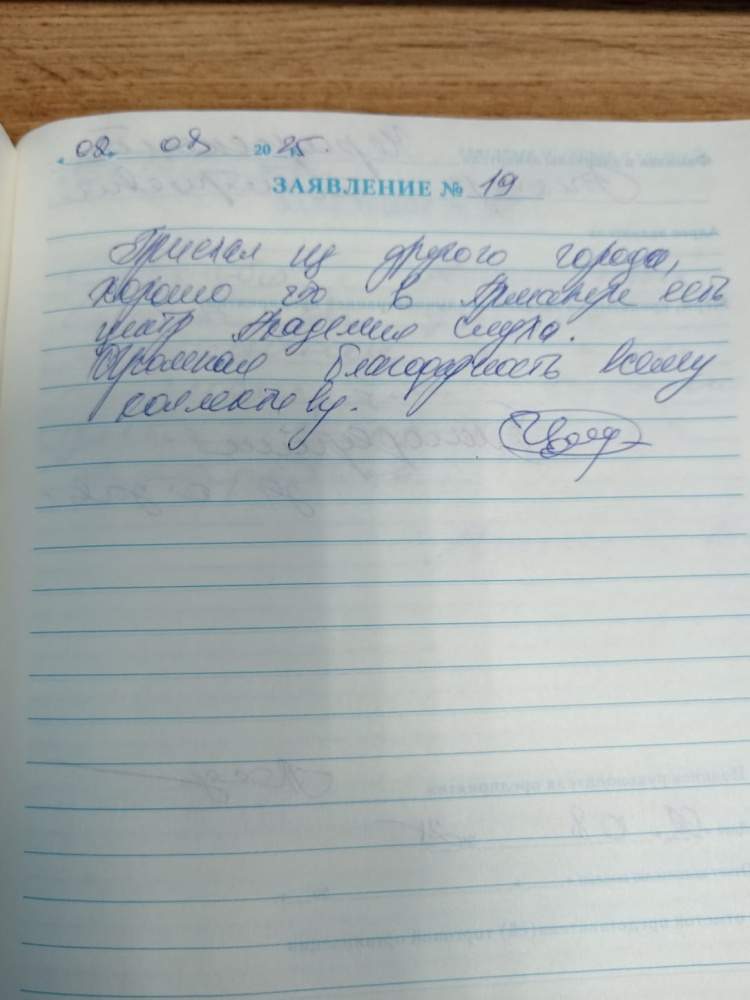 02. 08 2025
ЗАЯВЛЕНИЕ № 19
Приехал из другого города,
хорошо что в Армавире есть
центр Академия Слуха.
Огромная благодарность всему
коллективу.